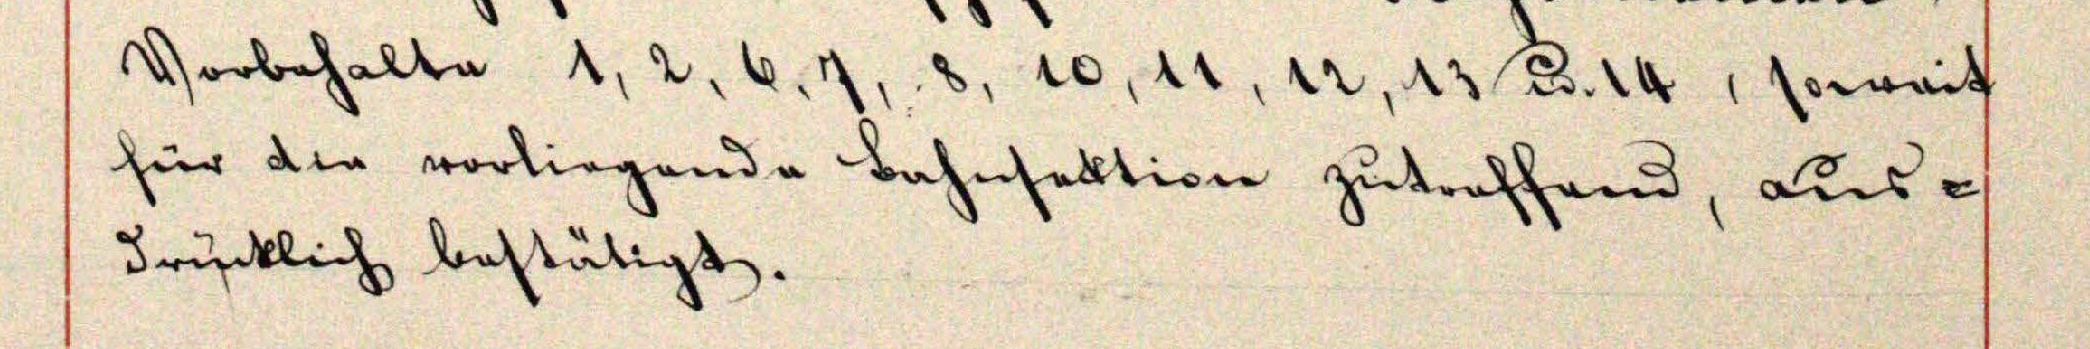 Vorbehalte 1, 2, 6, 7, 8, 10, 11, 12, 13 u. 14, soweit
für die vorliegende Bahnsektion zutreffend, aus=
drücklich bestätigt.